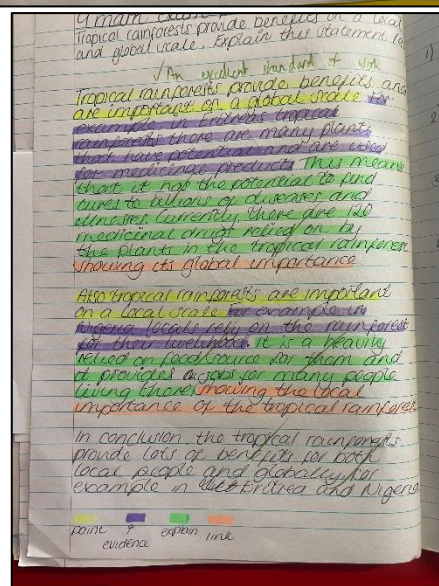 4 mark exam
Tropical rainforests provide benefits on a local
and global scale. Explain this statement
✓ An excellent standard of work
Tropical rainforests provide benefits and
are important on a global scale for
example in Eritreas tropical
rainforests there are many plants
that have potential and are used
for medicinal products This means
that it has the potential to find
cures to billions of diseases and
illnesses. Currently there are 120
medicinal drugs relied on by
the plants in the tropical rainforest
showing its global importance
Also tropical rainforests are important
on a local scale for example in
Nigeria locals rely on the rainforest
for their livelihood. it is a heavily
relied on food source for them and
it provides jobs for many people
living there showing the local
importance of the tropical rainforest
In conclusion the tropical rainforests
provide lots of benefits for both
local people and globally for
example in Eritrea and Nigeria
point evidence explain link